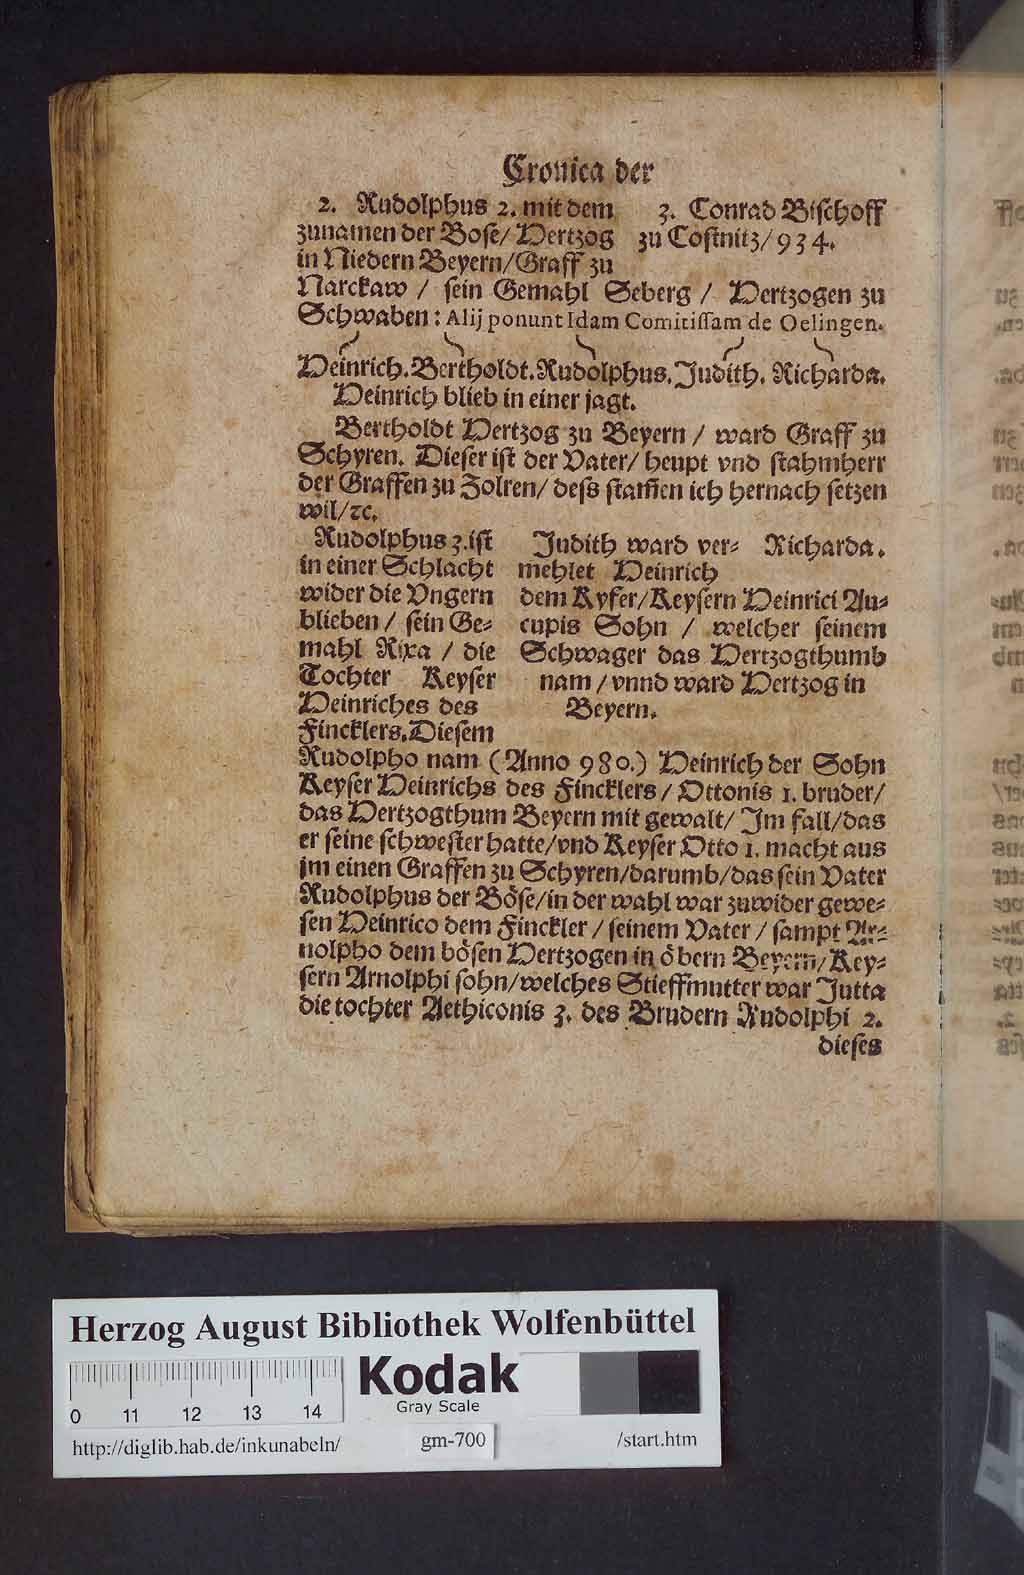 Cronica der
2. Rudolphus 2. mit dem
zunamen der Bose/ Hertzog
in Niedern Beyern/ Graff zu
3. Conrad Bischoff
zu Costnitz/ 934.
Narckaw / sein Gemahl Seberg / Hertzogen zu
Schwaben: Alij ponunt Idam Comitissam de Oelingen.
Heinrich. Bertholdt. Rudolphus. Judith. Richarda.
Heinrich blieb in einer jagt.
Bertholdt Hertzog zu Beyern / ward Graff zu
Schyren. Dieser ist der Vater/ heupt vnd stahmherr
der Graffen zu Zolren/ deß stam̃en ich hernach setzen
wil/ ꝛc.
Rudolphus 3. ist
in einer Schlacht
wider die Vngern
blieben / sein Ge⸗
mahl Rixa / die
Tochter Keyser
Heinriches des
Fincklers. Diesem
Judith ward ver⸗
mehlet Heinrich
dem Kyfer/ Keysern Heinrici Au⸗
cupis Sohn / welcher seinem
Schwager das Hertzogthumb
nam / vnnd ward Hertzog in
Beyern.
Richarda.
Rudolpho nam (Anno 980.) Heinrich der Sohn
Keyser Heinrichs des Fincklers / Ottonis 1. bruder/
das Hertzogthum Beyern mit gewalt/ Im fall/ das
er seine schwester hatte/ vnd Keyser Otto 1. macht aus
jm einen Graffen zu Schyren/ darumb/ das sein Vater
Rudolphus der Böse/ in der wahl war zuwider gewe⸗
sen Heinrico dem Finckler / seinem Vater / sampt Ar⸗
nolpho dem bösen Hertzogen in öbern Beyern/ Key⸗
sern Arnolphi sohn/ welches Stieffmutter war Jutta
die tochter Aethiconis 3. des Brudern Rudolphi 2.
dieses
Herzog August Bibliothek Wolfenbüttel
0 11 12 13 14
Kodak
Gray Scale
http://diglib.hab.de/inkunabeln/ gm-700 /start.htm